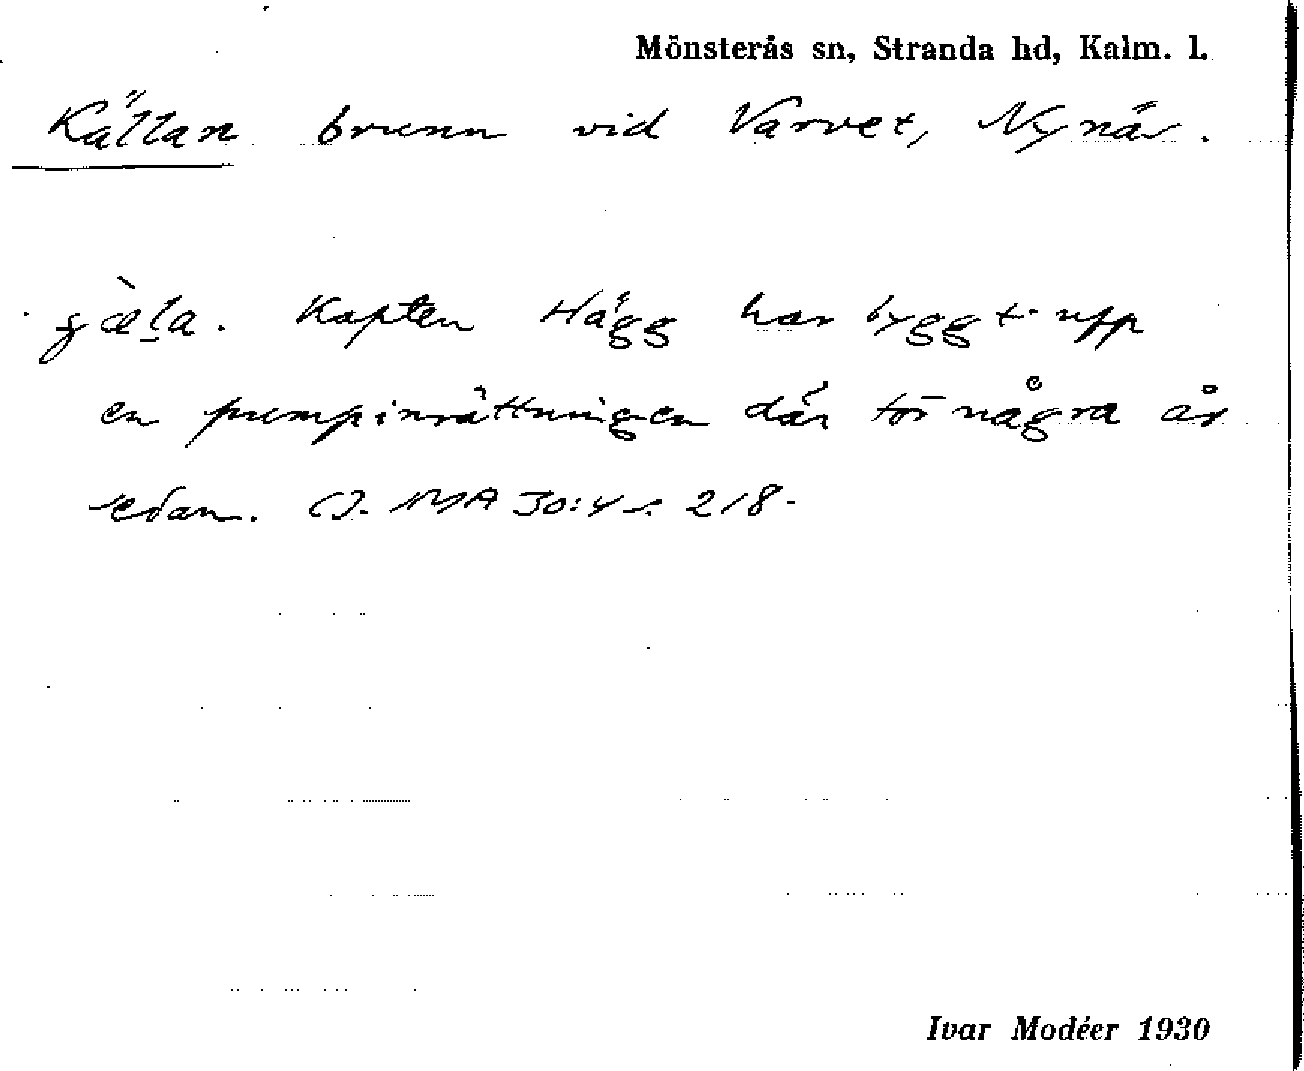 Mönsterås sn, Stranda hd, Kalm. l.
Källan brunn vid Varvet, Nynäs.
Kapten Hägg har byggt upp
en pumpinrättningen där för några år
sedan. IMA 30:4 s. 218.
Ivar Modéer 1930